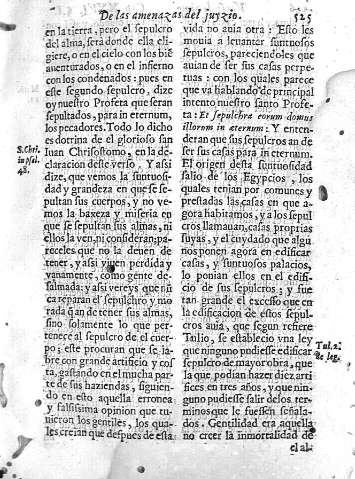 De las amenazas del juyzio. 525
en la tierra, pero el sepulcro
del alma, será donde ella eli-
giere, o en el cielo con los bié
auenturados, o en el infierno
con los condenados: pues en
este segundo sepulcro, dize
oy nuestro Profeta que seran
sepultados, para in eternum,
los pecadores. Todo lo dicho
es dotrina de el glorioso san
Iuan Chrisostomo, en la de-
claracion deste verso, Y assi
dize, que vemos la suntuosi-
dad y grandeza en que se se-
pultan sus cuerpos, y no ve-
mos la baxeza y miseria en
que se sepultan sus almas, ni
ellos la ven, ni consideran; pa-
receles que no la deuen de
tener, y assi viuen perdida y
vanamente, como gente de-
salmada: y assi vereys que nú
ca reparan el sepulchro y mo
rada q̃ an de tener sus almas,
sino solamente lo que per-
tenece al sepulcro de el cuer-
po; este procuran que se la-
bre con grande artificio y cos
ta, gastando en el mucha par-
te de sus haziendas, siguien-
do en esto aquella erronea
y falsissima opinion que tu-
uieron los gentiles, los qua-
les creian que despues de esta
S. Chri.
in psal.
48.
vida no auia otra: Esto les
mouia a leuanter suntuosos
sepulcros, pareciendoles que
auian de ser sus casas perpe-
tuas: con los quales parece
que va hablando de principal
intento nuestro santo Profe-
ta: Et sepulchra eorum domus
illorum in æternum: Y enten-
deran que sus sepulcros an de
ser sus casas para in eternum.
El origen desta suntuosidad
salio de los Egypcios, los
quales tenian por comunes y
prestadas las casas en que a-
gora habitamos, y a los sepul
cros llamauan, casas proprias
suyas, y el cuydado que algu
nos ponen agora en edificar
casas, y suntuosos palacios,
lo ponian ellos en el edifi-
cio de sus sepulcros; y fue
tan grande el excesso que en
la edificacion de estos sepul-
cros auia, que segun refiere
Tulio, se establecio vna ley
que ninguno pudiesse edificar
sepulcro de mayor obra, que
la que podian hazer diez arti
fices en tres años, y que nin-
guno pudiesse salir de los ter-
minos que le fuessen señala-
dos. Gentilidad era aquella
no creer la inmoralidad de
el al-
Tul. 2.
de leg.